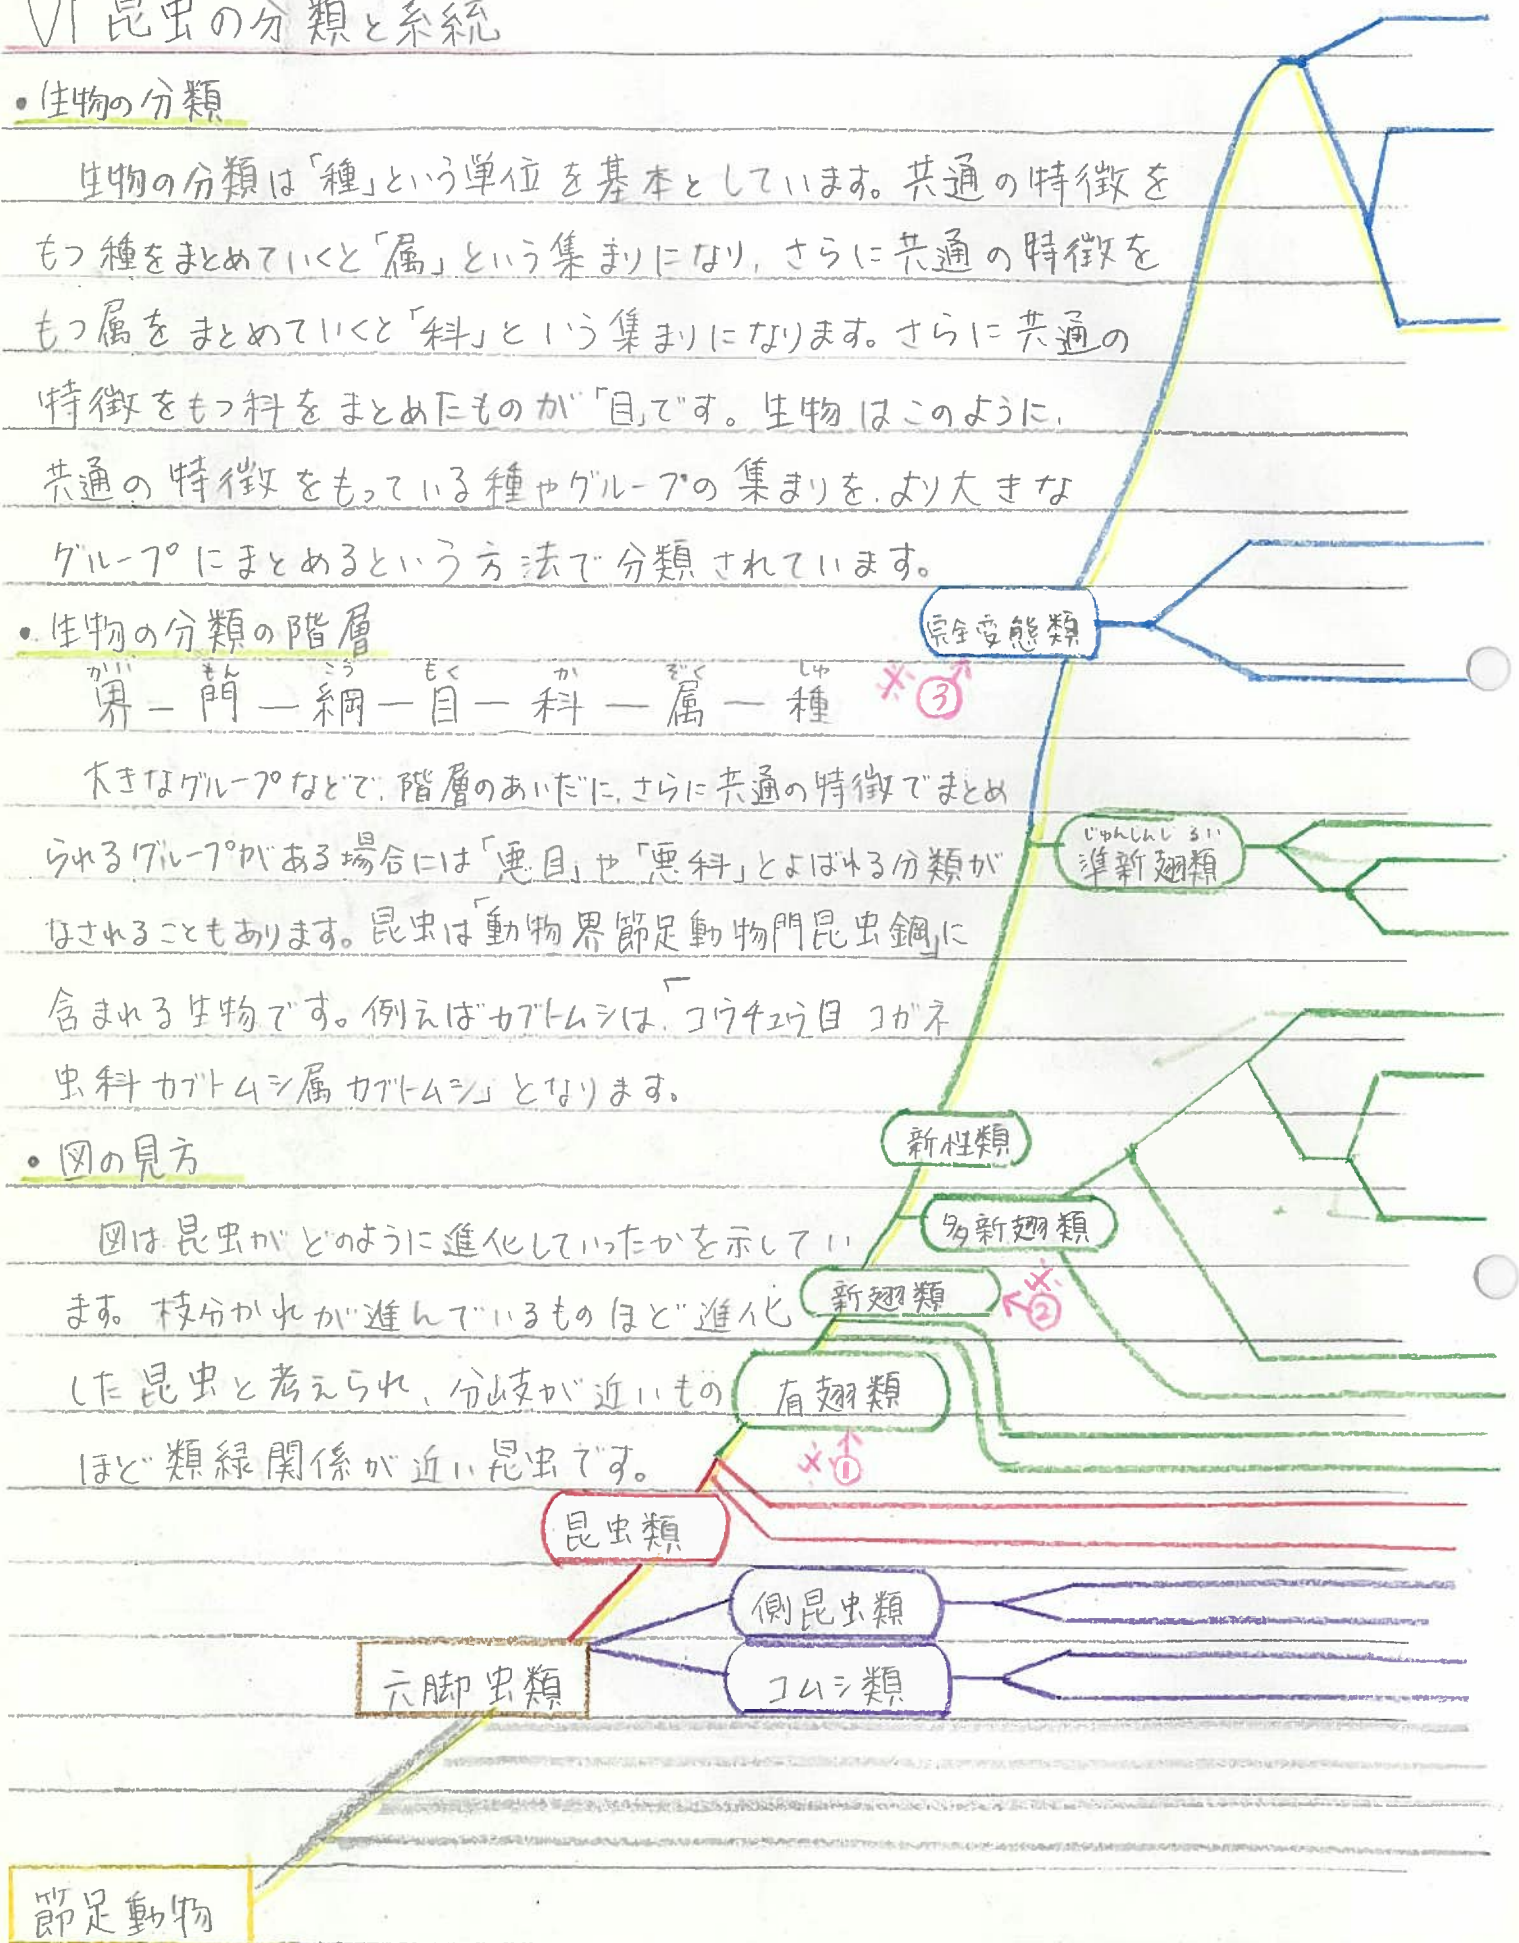 VI 昆虫の分類と系統
・生物の分類
生物の分類は「種」という単位を基本としています。共通の特徴を
もつ種をまとめていくと「属」という集まりになり、さらに共通の特徴を
もつ属をまとめていくと「科」という集まりになります。さらに共通の
特徴をもつ科をまとめたものが「目」です。生物はこのように、
共通の特徴をもっている種やグループの集まりを、より大きな
グループにまとめるという方法で分類されています。
・生物の分類の階層
かい もん こう もく か ぞく しゅ
界 ― 門 ― 綱 ― 目 ― 科 ― 属 ― 種
大きなグループなどで、階層のあいだに、さらに共通の特徴でまとめ
られるグループがある場合には「悪目」や「悪科」とよばれる分類が
なされることもあります。昆虫は「動物界節足動物門昆虫鋼」に
含まれる生物です。例えばカブトムシは、「コウチュウ目 コガネ
虫科 カブトムシ属 カブトムシ」となります。
・図の見方
図は昆虫がどのように進化していったかを示してい
ます。枝分かれが進んでいるものほど進化
した昆虫と考えられ、分岐が近いもの
ほど類緑関係が近い昆虫です。
完全変態類
※③
じゅんしんしるい
準新翅類
新性類
多新翅類
新翅類
※②
有翅類
※①
昆虫類
側昆虫類
六脚虫類
コムシ類
節足動物